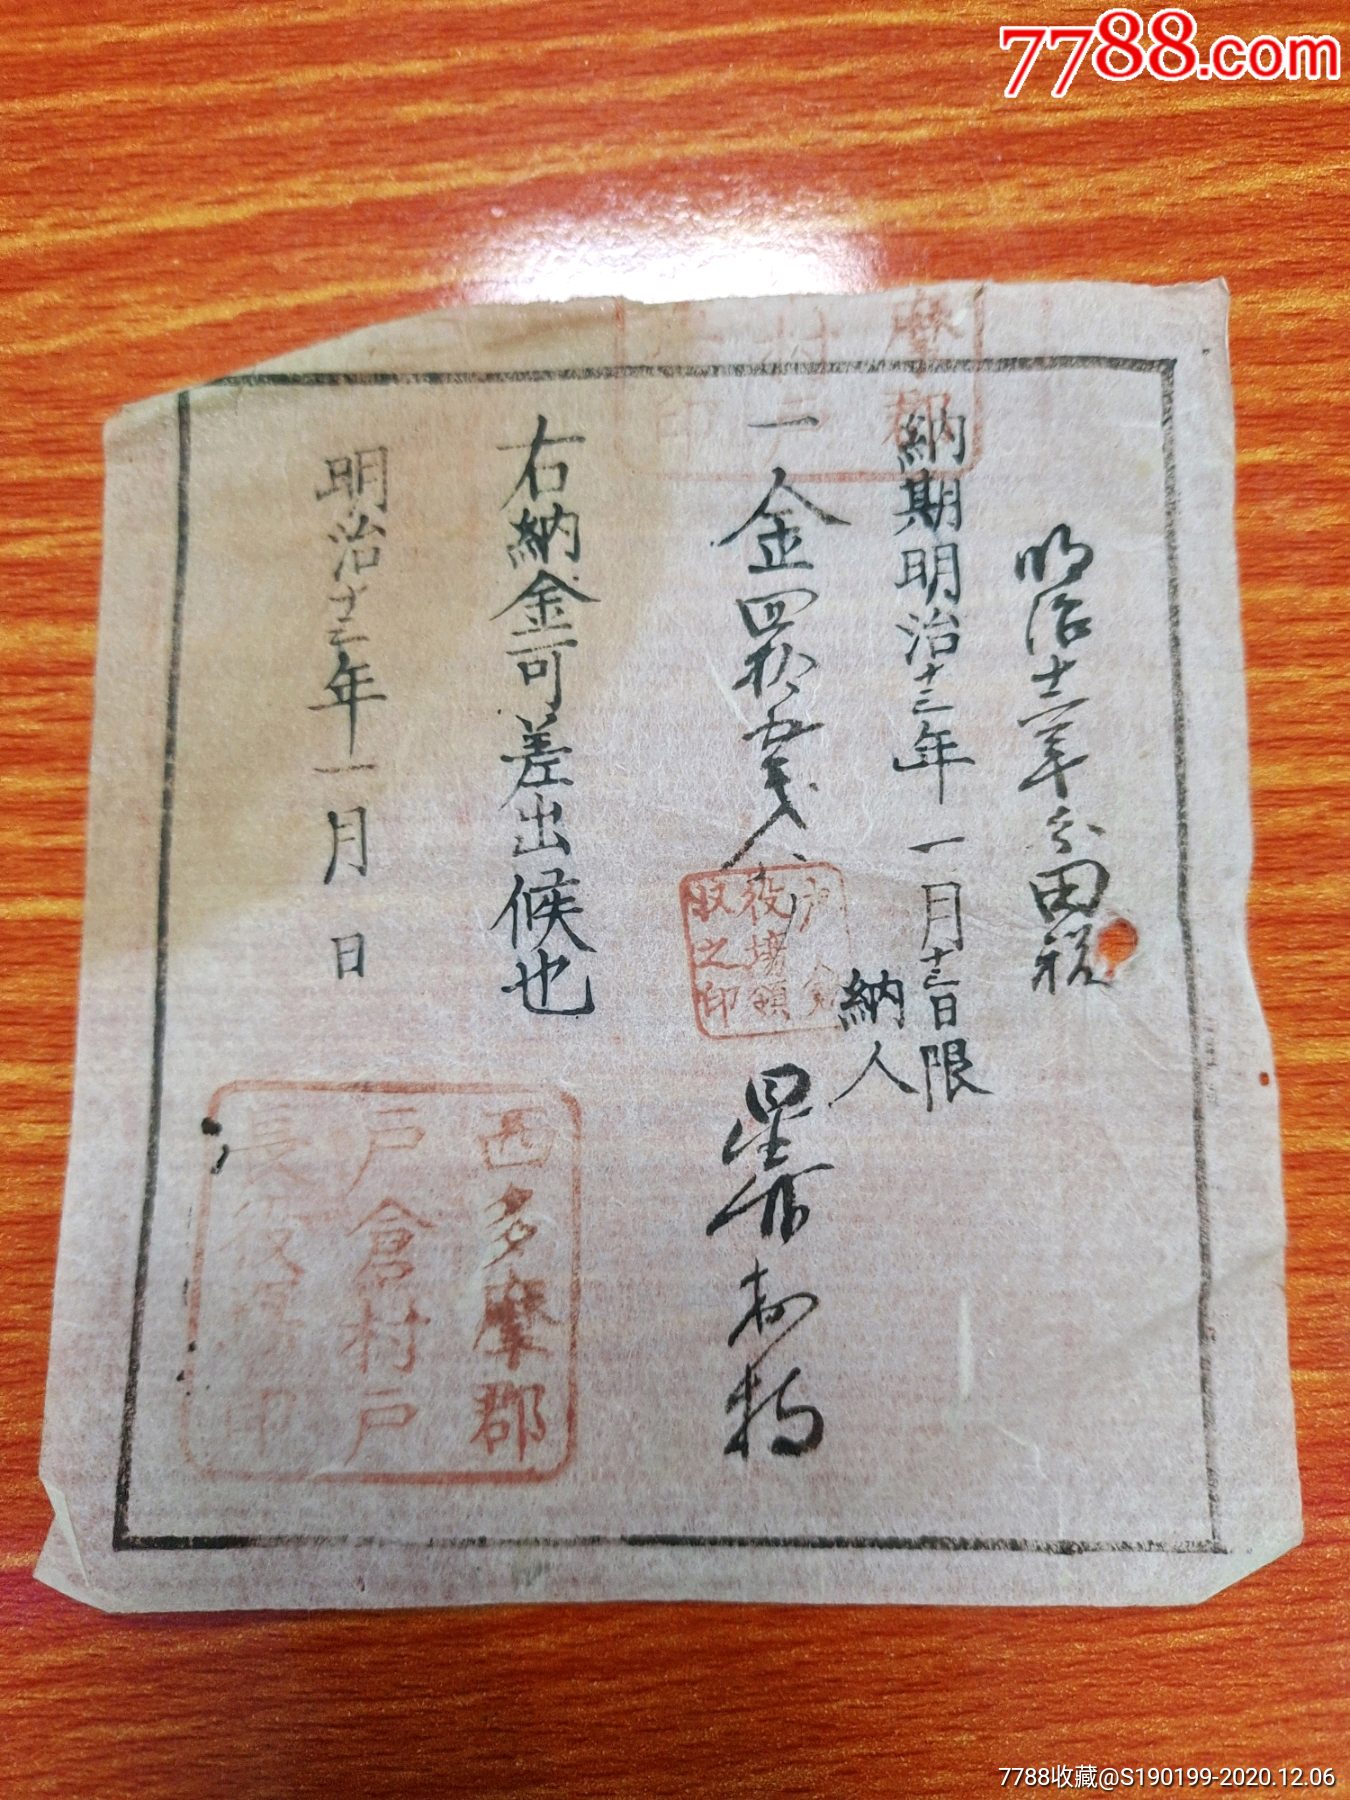 7788.com
明治十二年分田税
納期明治十三年一月十三日限
納人
一金四拾五銭八厘
右納金可差出候也
明治十三年一月 日
摩郡
村戸
印
役場領
収之印
西多摩郡
戸倉村戸
長役場印
7788收藏@S190199-2020.12.06